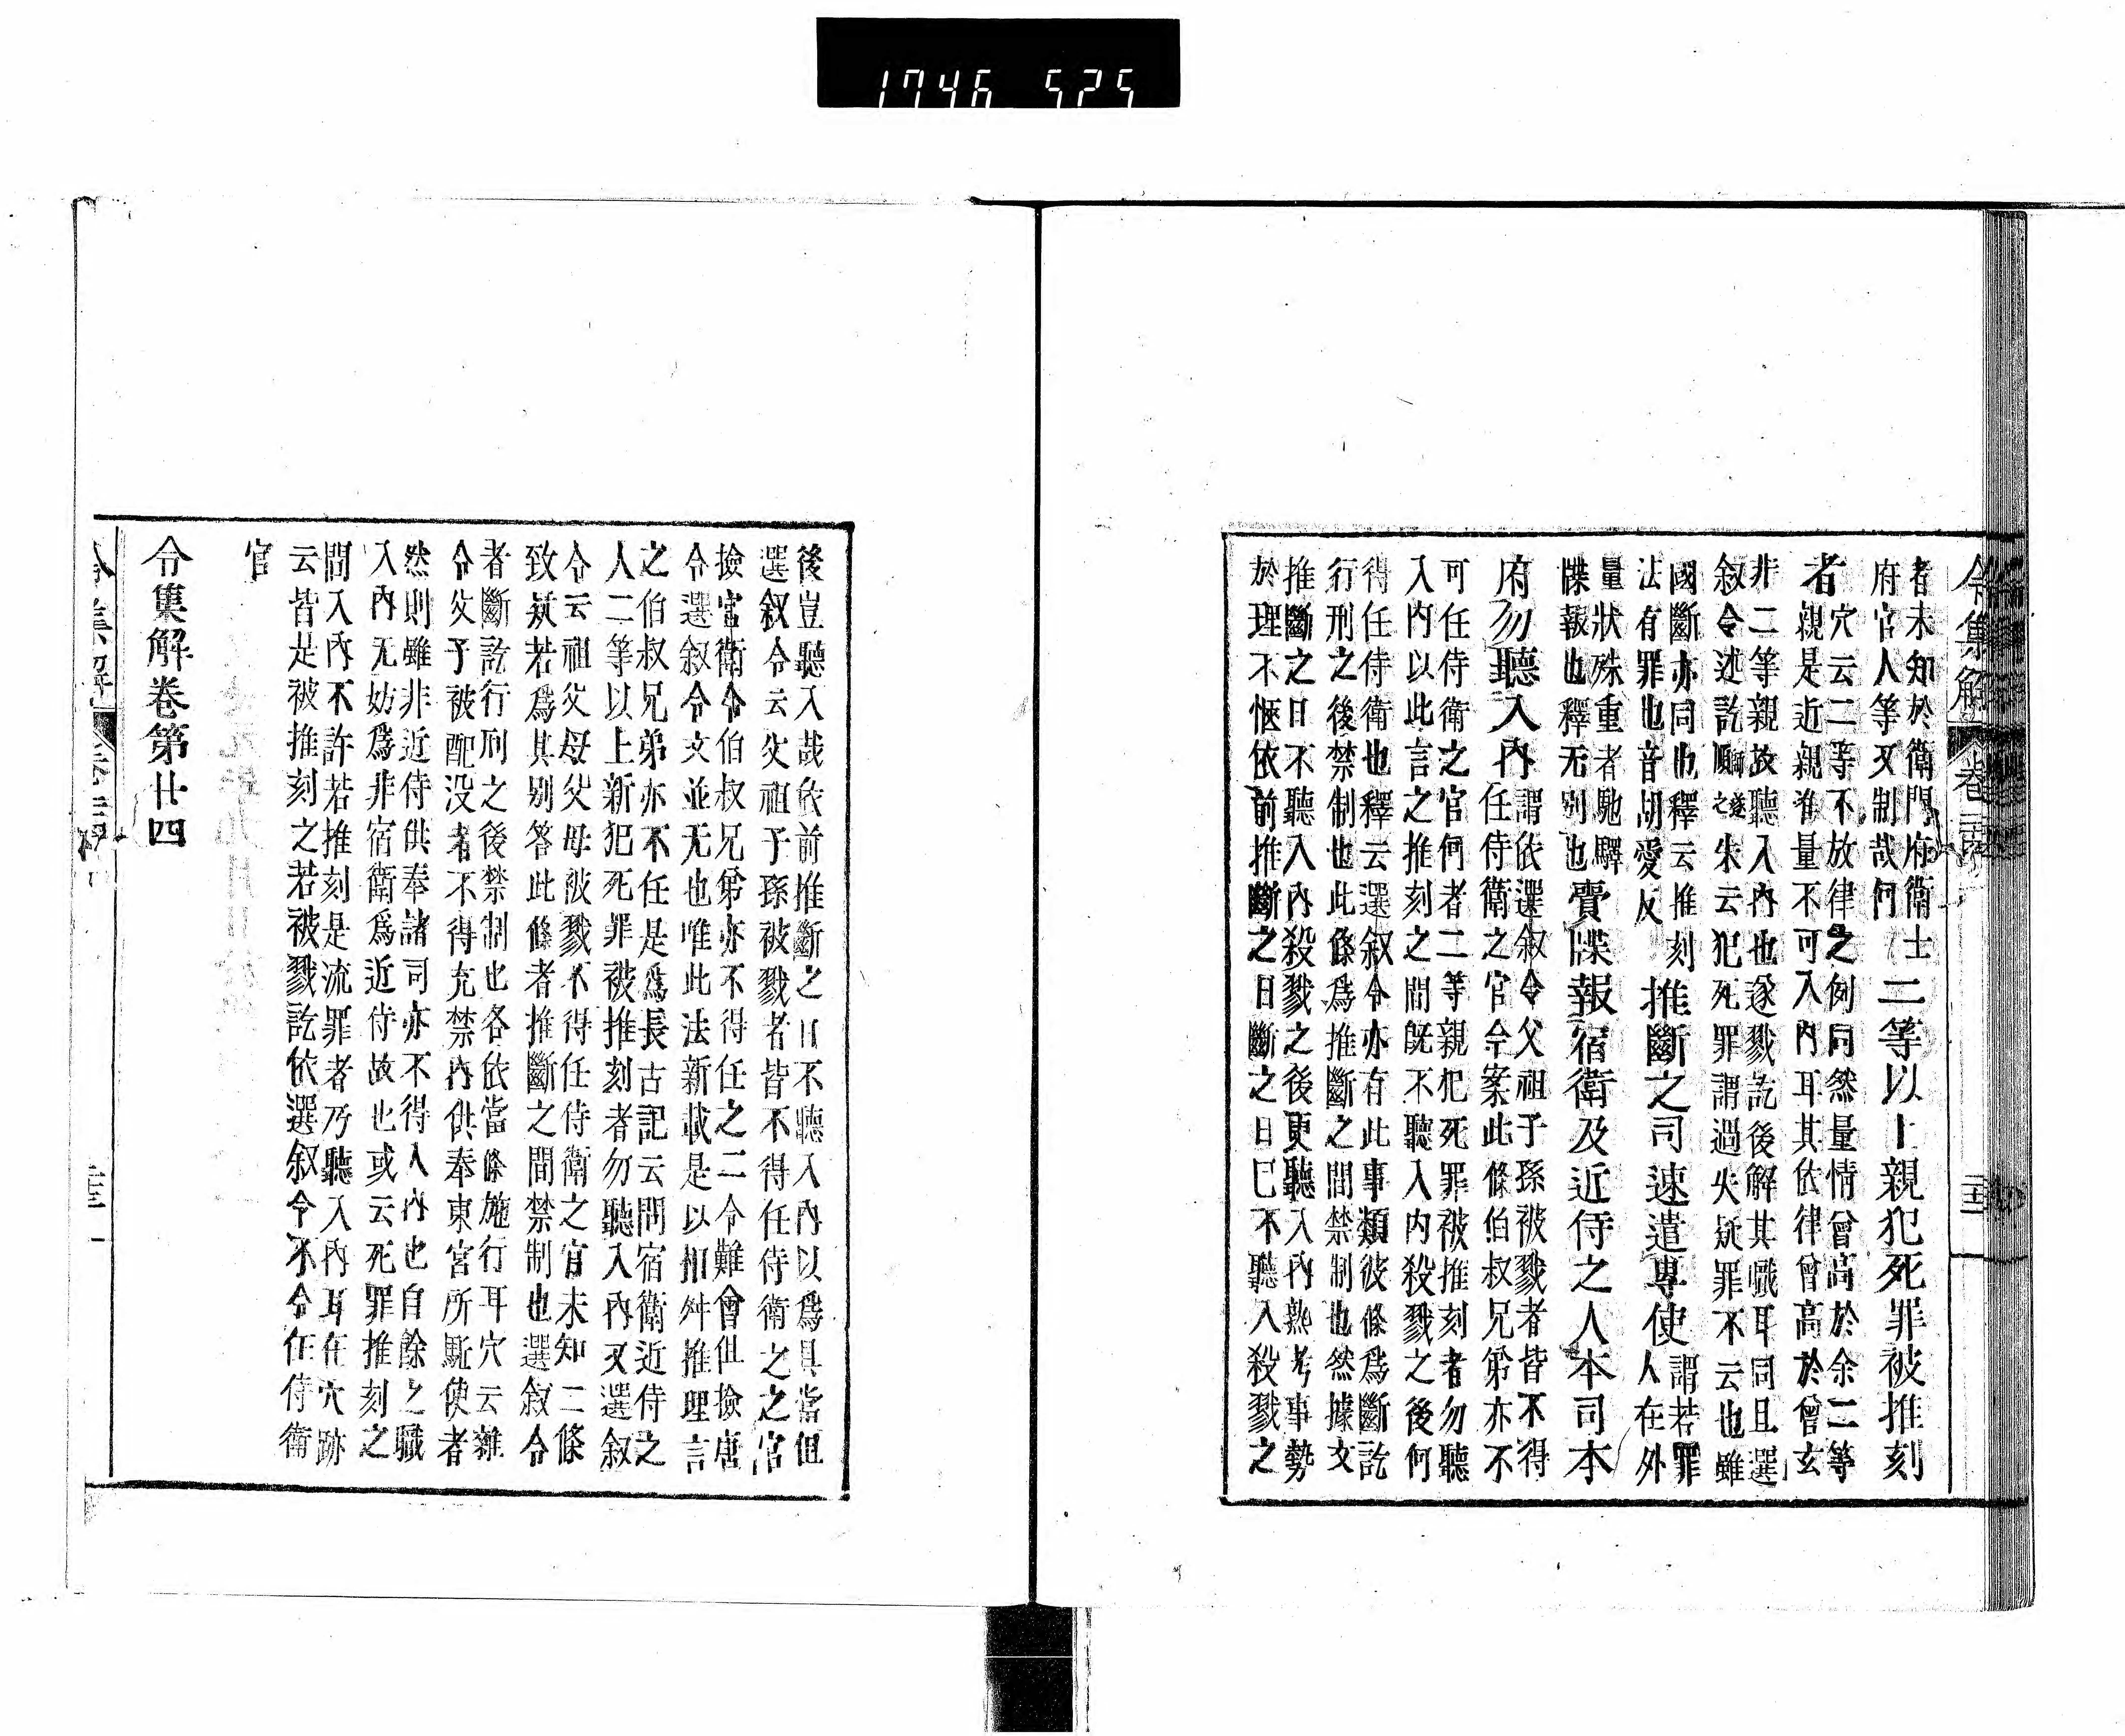 1746 525
令集解 卷二十四
者未知於衛門府衛士
府官人等又制哉何
二等以上親犯死罪被推刻
者
穴云二等不放律之例同然量情曾高於余二等
親是近親准量不可入内耳其依律曾高於曾玄
非二等親故聽入内也逐戮訖後解其職耳同且選
叙令述訖朱云犯死罪謂過失疑罪不云也雖
國斷亦同也釋云推刻
法有罪也音胡愛反
推斷之司速遣專使
謂若罪
人在外
量狀殊重者馳驛
牒報也釋无別也
賷牒報宿衛及近侍之人本司本
府勿聽入内
謂依選叙令父祖子孫被戮者皆不得
任侍衛之官今案此條伯叔兄弟亦不
可任侍衛之官何者二等親犯死罪被推刻者勿聽
入内以此言之推刻之間既不聽入内殺戮之後何
得任侍衛也釋云選叙令亦有此事類彼條爲斷訖
行刑之後禁制也此條爲推斷之間禁制也然據文
推斷之日不聽入内殺戮之後更聽入内熟考事勢
於理不愜依前推斷之日斷之日已不聽入殺戮之
後豈聽入哉依前推斷之日不聽入内以爲具當但
選叙令云父祖子孫被戮者皆不得任侍衛之之官
撿官衛令伯叔兄弟亦不得任之二令難會但撿唐
令選叙令文並无也唯此法新載是以相舛推理言
之伯叔兄弟亦不任是爲長古記云問宿衛近侍之
人二等以上新犯死罪被推刻者勿聽入内又選叙
令云祖父母父母被戮不得任侍衛之官未知二條
致疑若爲其別答此條者推斷之間禁制也選叙令
者斷訖行刑之後禁制也各依當條施行耳穴云雜
令父子被配没者不得充禁内供奉東宮所駈使者
然則雖非近侍供奉諸司亦不得入内也自餘之職
入内无妨爲非宿衛爲近侍故也或云死罪推刻之
間入内不許若推刻是流罪者乃聽入内耳在穴跡
云皆是被推刻之若被戮訖依選叙令不令任侍衛
官
令集解卷第廿四
令集解